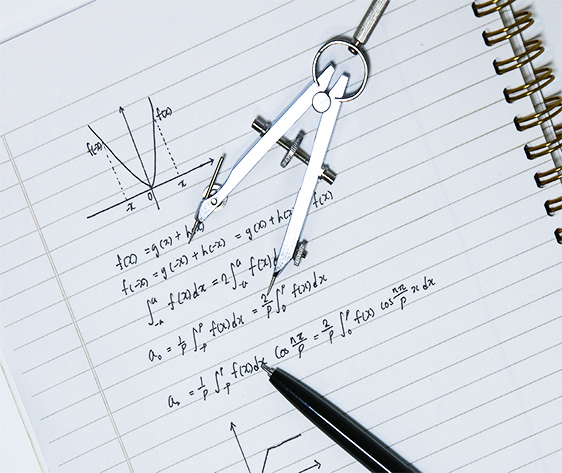 f(x)
f(-x)
-x 0 x
f(x) = g(x) + h
f(-x) = g(-x) + h(-x) = g(x) + h(x) f(x)
∫_{-a}^{a} f(x)dx = 2∫_{-a}^{a} f(x)d
a₀ = 1/p ∫_{-p}^{p} f(x)dx = 2/p ∫_{0}^{p} f(x)dx
= 1/p ∫_{-p}^{p} f(x)dx cos nπ/p = 2/p ∫_{0}^{p} f(x) cos nπ/p x dx